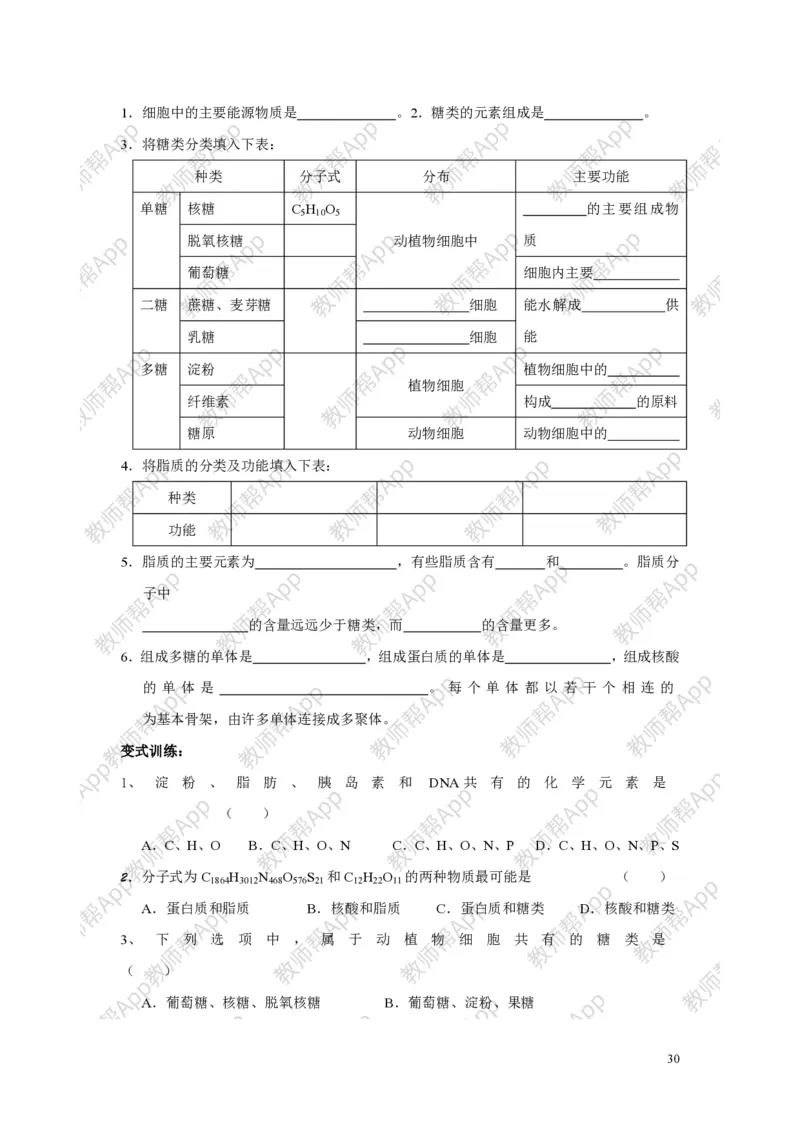 1．细胞中的主要能源物质是______________。2．糖类的元素组成是______________。
3．将糖类分类填入下表：
种类 分子式 分布 主要功能
单糖 核糖 C5H10O5 动植物细胞中 _________的主要组成物质
脱氧核糖
葡萄糖 细胞内主要____________
二糖 蔗糖、麦芽糖 _______________细胞 能水解成____________供能
乳糖 _______________细胞
多糖 淀粉 植物细胞 植物细胞中的__________
纤维素 构成____________的原料
糖原 动物细胞 动物细胞中的__________
4．将脂质的分类及功能填入下表：
种类
功能
5．脂质的主要元素为____________________，有些脂质含有_______和_________。脂质分
子中
_______________的含量远远少于糖类，而___________的含量更多。
6．组成多糖的单体是________________，组成蛋白质的单体是_______________，组成核酸
的单体是______________________________。每个单体都以若干个相连的
为基本骨架，由许多单体连接成多聚体。
变式训练：
1、 淀粉、脂肪、胰岛素和 DNA共有的化学元素是
（ ）
A．C、H、O B．C、H、O、N C．C、H、O、N、P D．C、H、O、N、P、S
2、分子式为C1864H3012N468O576S21 和C12H22O11 的两种物质最可能是 （ ）
A．蛋白质和脂质 B．核酸和脂质 C．蛋白质和糖类 D．核酸和糖类
3、 下列选项中，属于动植物细胞共有的糖类是
（ ）
A．葡萄糖、核糖、脱氧核糖 B．葡萄糖、淀粉、果糖
30
教师帮App